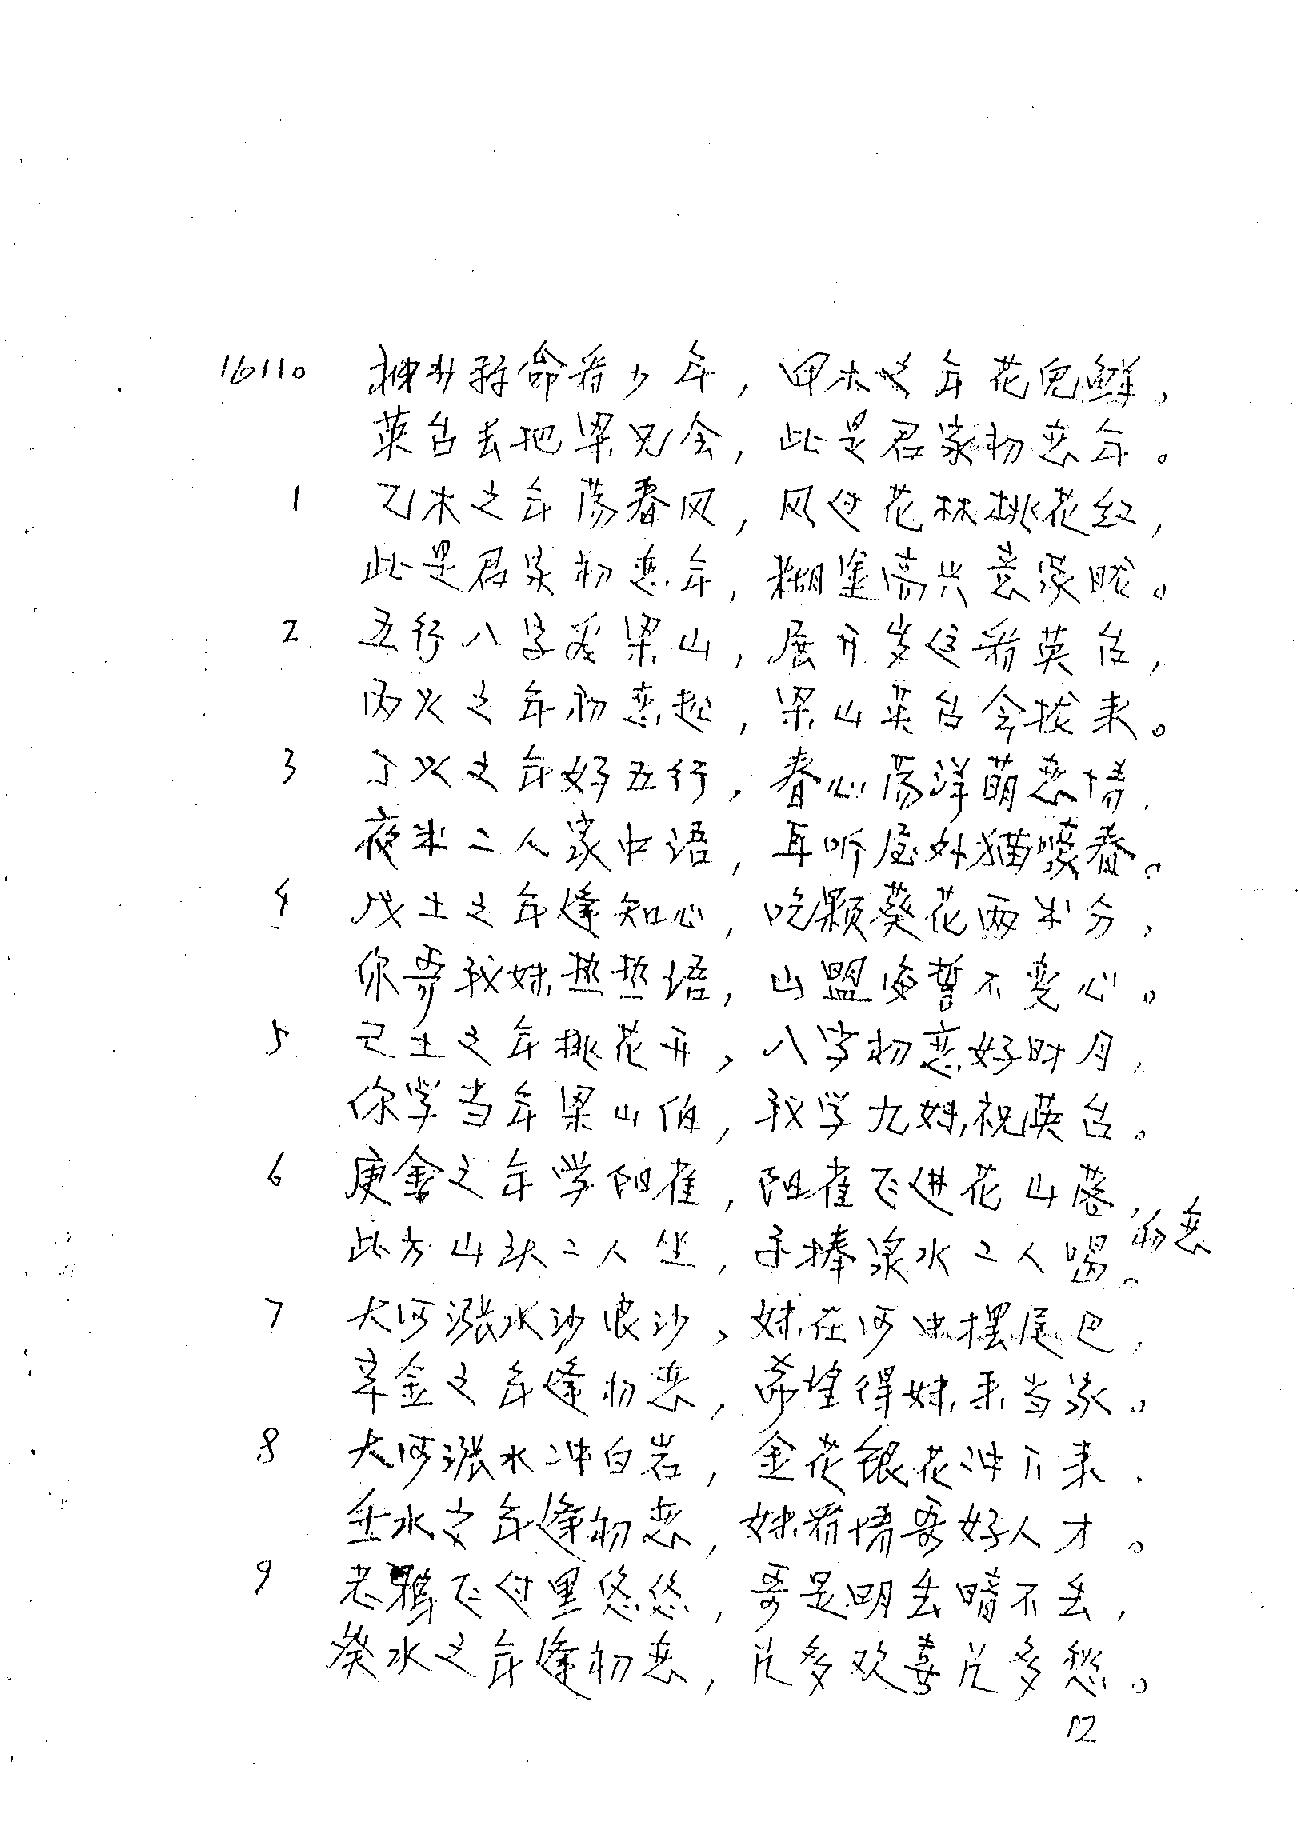 16110 抻分称命看少年，甲木之年花儿鲜。
英台去把梁兄会，此是君家初恋年。
1 乙木之年荡春风，风过花林桃花红，
此是君家初恋年，糊涂高兴意朦胧。
2 五行八字看梁山，展开岁运看英台，
丙火之年初恋起，梁山英台会拢来。
3 丁火之年好五行，春心荡洋萌恋情，
夜半二人家中语，耳听屋外猫嚎春。
4 戊土之年逢知心，吃颗葵花两半分，
你哥我妹热热语，山盟海誓不变心。
5 己土之年桃花开，八字初恋好时月，
你学当年梁山伯，我学九妹祝英台。
6 庚金之年学阳雀，阳雀飞进花山落，
此方山头二人坐，手捧泉水二人喝。初恋
7 大河涨水沙浪沙，妹在河中摆尾巴，
辛金之年逢初恋，希望得妹来当家。
8 大河涨水冲白岩，金花银花冲下来，
壬水之年逢初恋，妹看情哥好人才。
9 老鸦飞过黑悠悠，哥是明丢暗不丢，
癸水之年逢初恋，几多欢喜几多愁。
12